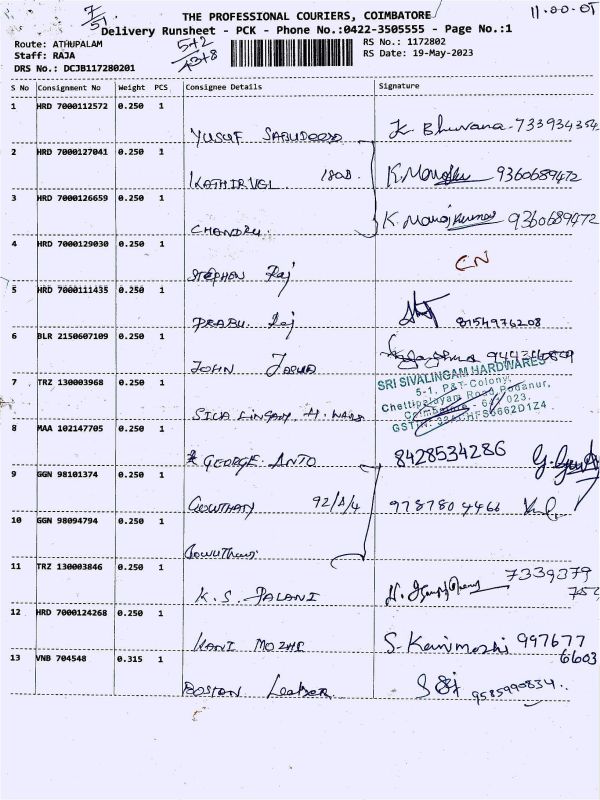 7/51
11.00.05
THE PROFESSIONAL COURIERS, COIMBATORE
Delivery Runsheet - PCK - Phone No.:0422-3505555 - Page No.:1
Route: ATHUPALAM
5+2
RS No.: 1172802
Staff: RAJA
RS Date: 19-May-2023
DRS No.: DCJB117280201
S No Consignment No Weight PCS Consignee Details Signature
1 HRD 7000112572 0.250 1
YUSUF K. Bhuvana - 733934354
2 HRD 7000127041 0.250 1
KATHIRVEL 180B. K.Manoj 9360689472
3 HRD 7000126659 0.250 1
CHANDRU. K. Manojkumar 9360689472
4 HRD 7000129030 0.250 1
STEPHEN Raj CN
5 HRD 7000111435 0.250 1
PRABU. Raj 8154976208
6 BLR 2150607109 0.250 1
JOHN JOSHUA
SRI SIVALINGAM HARDWARES
7 TRZ 130003968 0.250 1
5-1, P&T-Colony,
Chettipalayam Road, Podanur,
SIVA LINGAM H. Coimbatore - 641 023.
8 MAA 102147705 0.250 1
GEORGE. ANTO 8428534286
9 GGN 98101374 0.250 1
GOWTHAM 92/A/4 9787804466
10 GGN 98094794 0.250 1
Gowtham.
11 TRZ 130003846 0.250 1
7339379
K. S. PALANI
12 HRD 7000124268 0.250 1
KANI MOZHI S. Kanimozhi 997677
6603
13 VNB 704548 0.315 1
BOSTON Leather 9585990834..